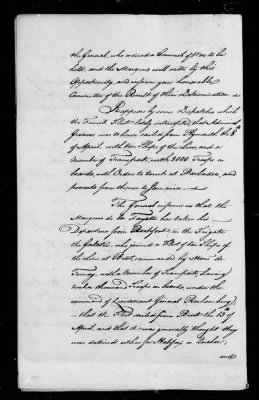 the General, who ordered a Council of War to be
held, and the Marquis will write by this
Opportunity, and inform your honorable
Committee of the Result of their Determination.
It appears by some Dispatches which
the French Fleet lately intercepted, that Admiral
Graves was to have sailed from Plymouth the 8th
of April, with ten Ships of the Line and a
Number of Transports, with 3000 Troops on
board, with Orders to touch at Barbadoes, and
proceed from thence to Jamaica.
The General informs us that the
Marquis de la Fayette has taken his
Departure from Rochfort, in the Frigate
the Galatie, who joined a Fleet of ten Ships of
the Line at Brest, commanded by Monr. de
Ternay, with a Number of Transports, having
thousand Troops on board, under the
command of Lieutenant General
that the Fleet sailed from Brest the 13th of
April, and that it was generally thought they
were destined either for Halifax or Quebec,
and